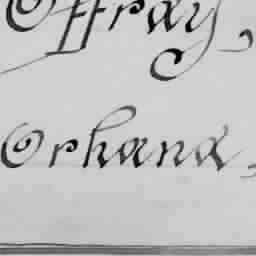 Offray,
Orhana,